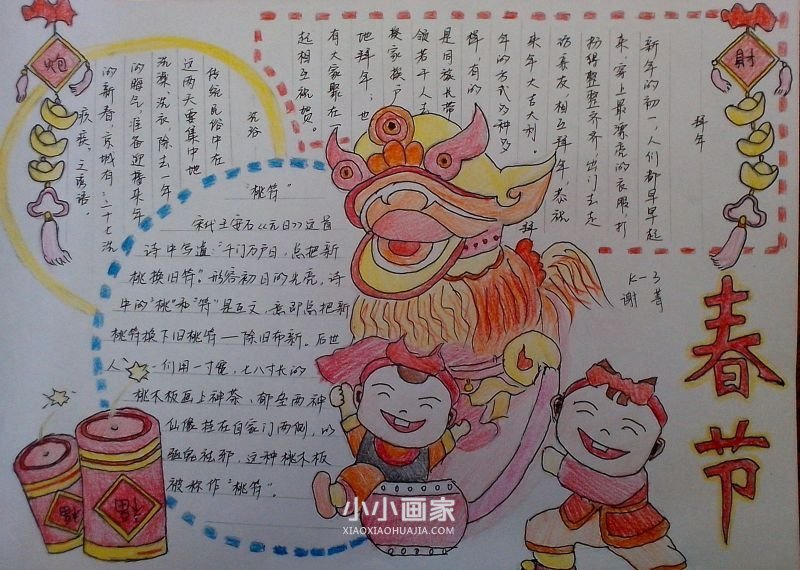 財
拜年
新年的初一,人们都早早起
来,穿上最漂亮的衣服,打
扮得整整齐齐,出门去走
访亲友,相互拜年,恭祝
来年大吉大利。拜
年的方式多种多
样,有的
是同族长带
领若干人去
挨家挨户
地拜年;也
有大家聚在一
起相互祝贺。
炮
沐浴
传统民俗中在
这两天要集中地
洗澡、洗衣,除去一年
的晦气,准备迎接来年
的新春,京城有:二十七洗
疚疾、之谚语。
"桃符"
宋代王安石《元日》这首
诗中写道:"千门万户日,总把新
桃换旧符"。形容初日的光亮,诗
中的"桃"和"符"是互文,意即总把新
桃符换下旧桃符——除旧布新。后世
人们用一寸宽,七八寸长的
桃木板画上神荼、郁垒两神
仙像挂在自家门两侧,以
驱鬼祛邪,这种桃木板
被称作"桃符"。
K-3
谢菁
春节
福
福
小小画家
XIAOXIAOHUAJIA.COM